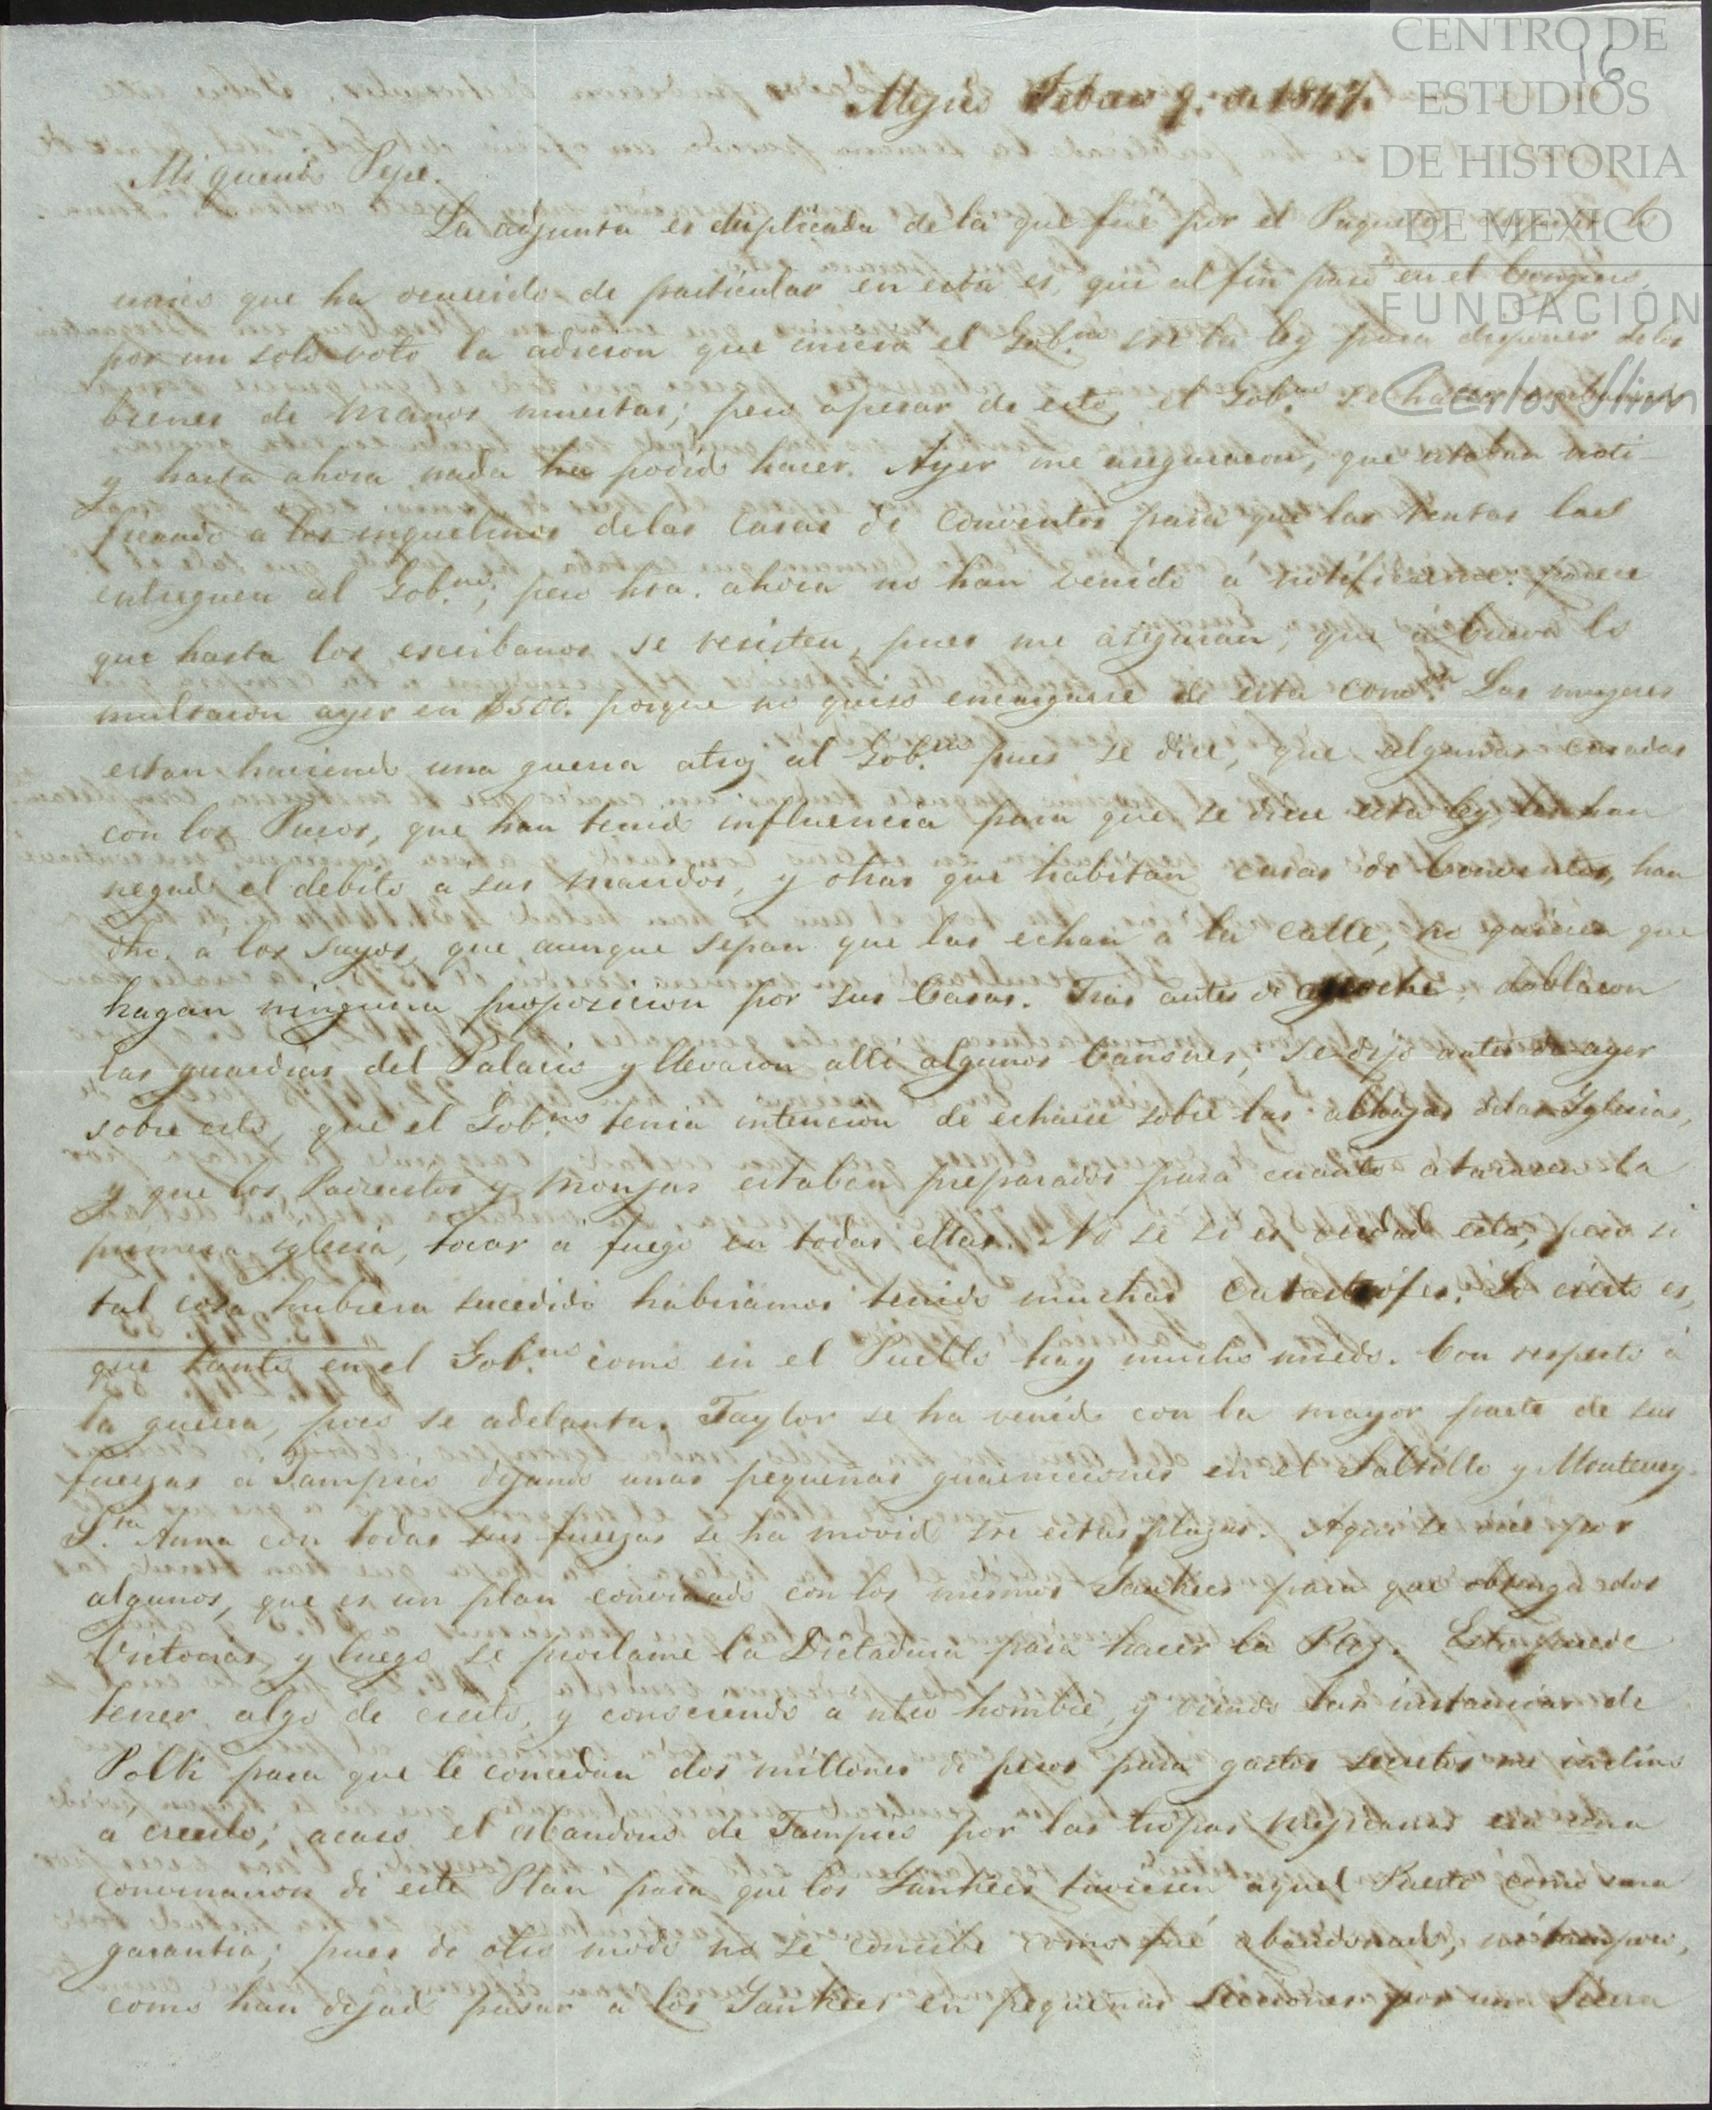 CENTRO DE
ESTUDIOS
DE HISTORIA
DE MEXICO
FUNDACIÓN
Carlos Slim
16
Mejico Febrero 9. de 1847.
Mi querido Pepe.
La adjunta es duplicada de la que fue por el Paquete, despues lo
unico que ha ocurrido de particular en esta es, que al fin pasó en el Congreso,
por un solo voto la adicion que queria el Gob.no sre la ley para disponer de los
bienes de manos muertas; pero apesar de esto, el Gob.no se halla
y hasta ahora nada ha podido hacer. Ayer me aseguraron, que estaban noti-
ficando a los inquilinos de las casas de conventos para que las rentas las
entreguen al Gob.no; pero hta. ahora no han venido á notificarme: parece
que hasta los escribanos se resisten, pues me aseguran, que á lo
multaron ayer en $500. porque no quiso encargarse de esta comon. Las mugeres
estan haciendo una guerra atroz al Gob.no pues se dice, que algunas casadas
con los Puros, que han tenido influencia para que se diese esta ley, les han
negado el debito a sus maridos, y otras que habitan casas de Conventos, han
dho. á los suyos, que aunque sepan que las echan a la calle, no quieren que
hagan ninguna proposicion por sus Casas. Tras antes de anoche, doblaron
las guardias del Palacio y llevaron alli algunos Cañones; se dijo antes de ayer
sobre esto, que el Gob.no tenia intencion de echarse sobre las alhajas de las Iglesias,
y que los Padrecitos y Monjas estaban preparados para cuanto atacasen la
primera iglesia, tocar á fuego en todas ellas. No se si es verdad esto, pero si
tal cosa hubiera sucedido habriamos tenido muchas catastrofes. Lo cierto es,
que tanto en el Gob.no como en el Pueblo hay mucho miedo. Con respecto á
la guerra, poco se adelanta. Taylor se ha venido con la mayor parte de sus
fuerzas á Tampico dejando unas pequeñas guarniciones en el Saltillo y Monterrey.
S.ta Anna con todas sus fuerzas se ha movido sre estas plazas. Aqui se dice por
algunos, que es un plan convinado con los mismos Yankees para que obtenga dos
Victorias, y luego se proclame la Dictadura para hacer la Paz. Esto puede
tener algo de cierto, y conociendo a ntro hombre, y viendo las instancias de
Polk para que le concedan dos millones de pesos para gastos secretos me inclino
á creerlo; acaso el abandono de Tampico por las tropas mejicanas era una
convinacion de este Plan para que los Yankees tuviesen aquel Puerto como una
garantia; pues de otro modo no se concibe como fué abandonado, ni tampoco,
como han dejado pasar a los Yankees en pequeñas secciones por una Sierra